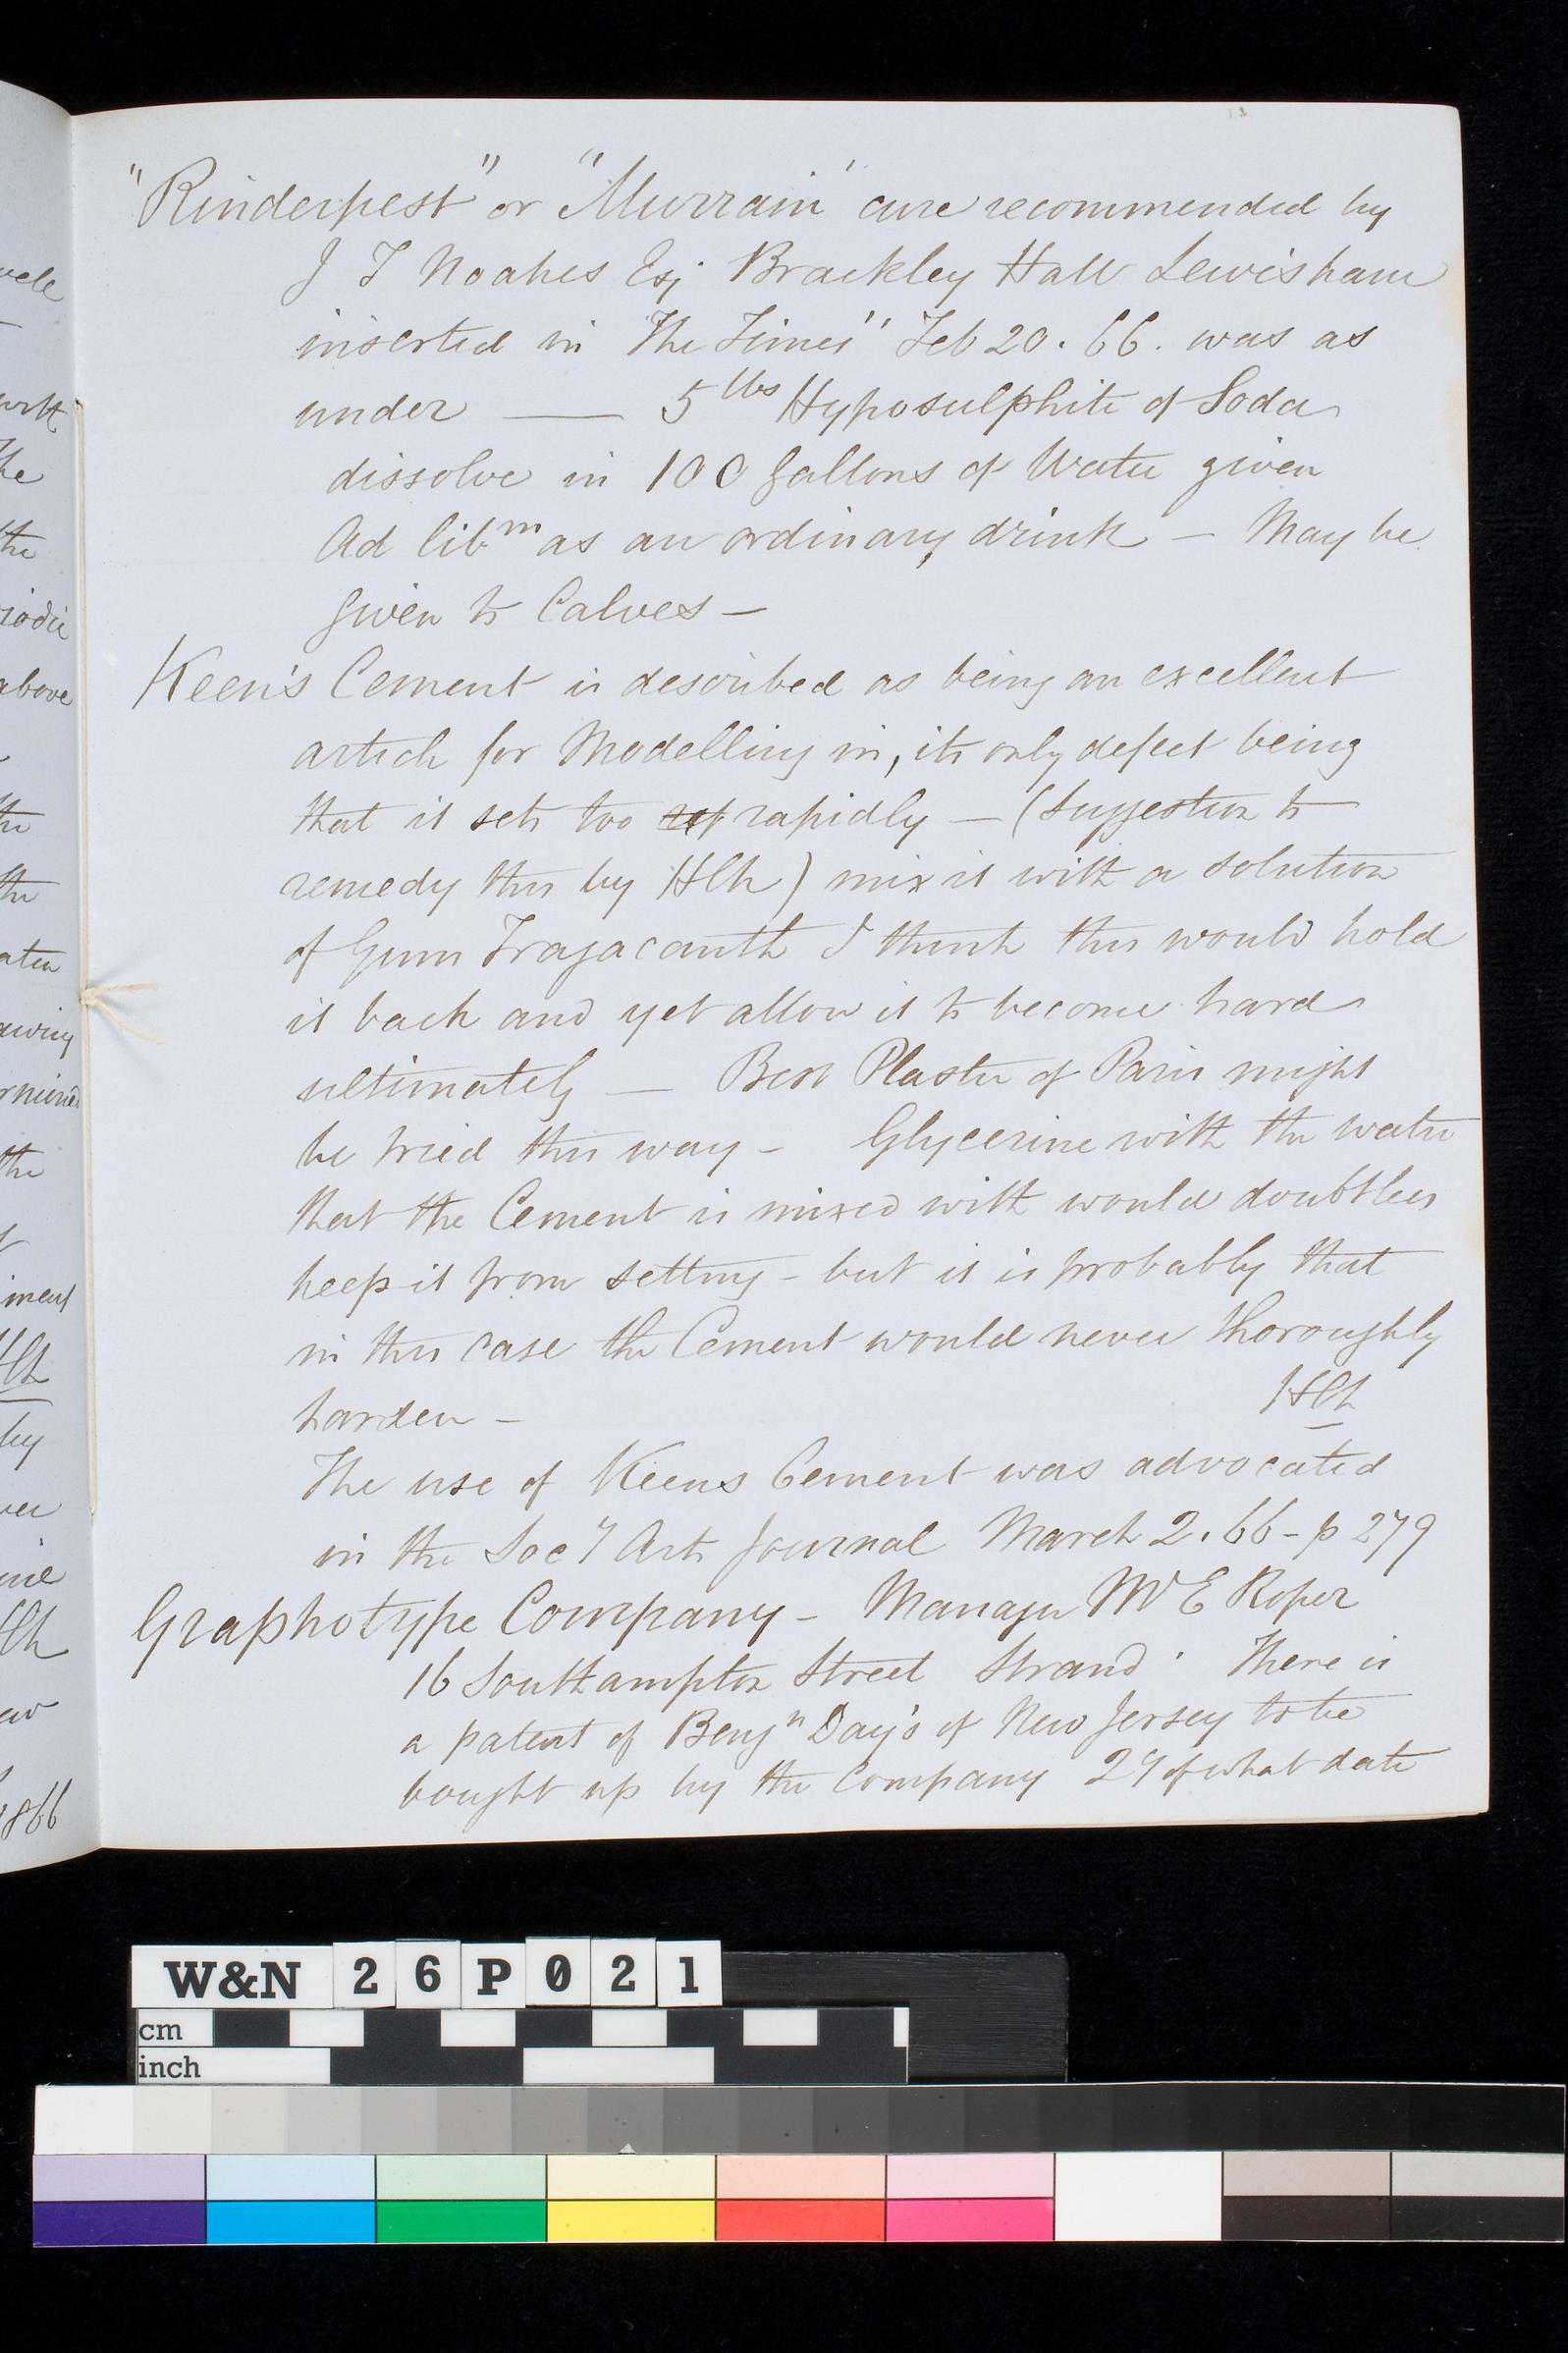 "Rinderpest" or "Murrain" cure recommended by
J T Noakes Esq Brackley Hall Lewisham
inserted in "The Times" Feb 20. 66. was as
under — 5 lbs Hyposulphite of Soda
dissolve in 100 Gallons of Water given
Ad libm as an ordinary drink – May be
given to Calves –
Keen's Cement is described as being an excellent
article for Modelling in, its only defect being
that it sets too rapidly – (Suggestion to
remedy this by HCh) mix it with a solution
of Gum Tragacanth I think this would hold
it back and yet allow it to become hard
ultimately — Best Plaster of Paris might
be tried this way – Glycerine with the water
that the Cement is mixed with would doubtless
keep it from setting – but it is probably that
in this case the Cement would never thoroughly
harden – HCh
The use of Keens Cement was advocated
in the Socy Arts Journal March 2. 66 – p 279
Graphotype Company – Manager Mr E Roper
16 Southampton Street Strand. There is
a patent of Benjn Day's of New Jersey to be
bought up by the Company 2y of what date
vell
with
The
the
iodic
above
the
the
ater
awing
the
iment
HCh
by
HCh
1866
W&N 26P021
cm
inch